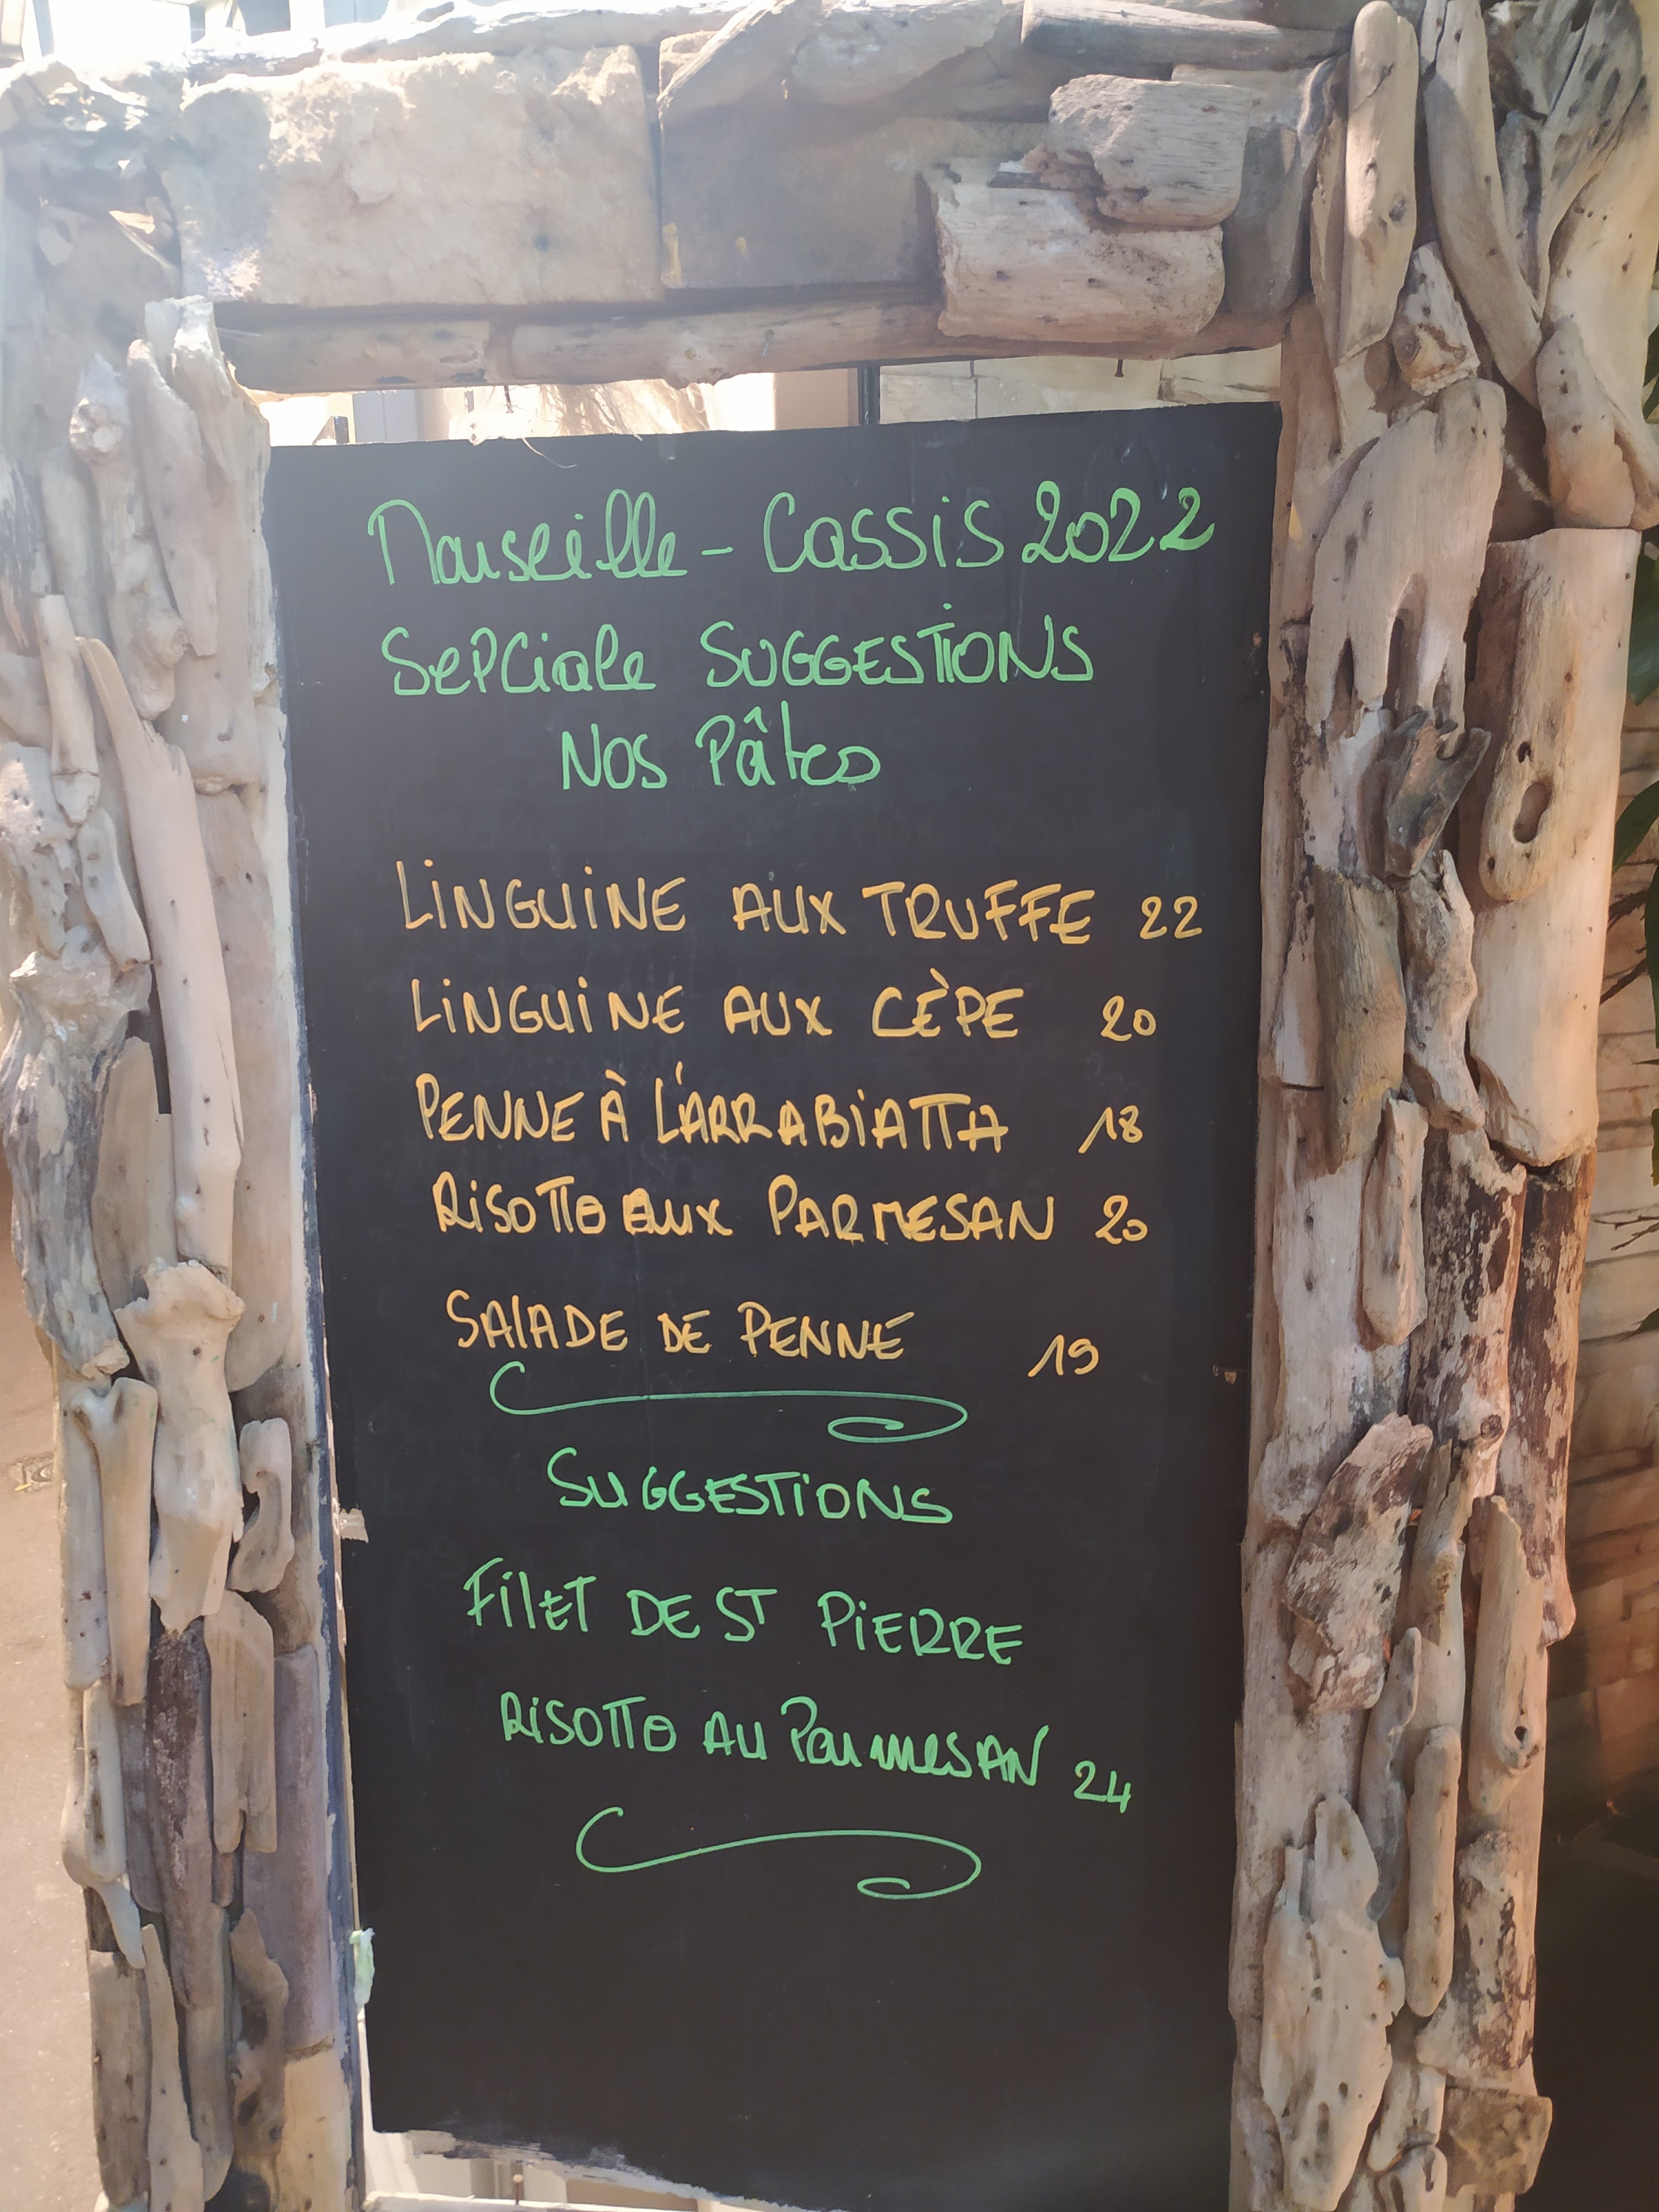 Marseille - Cassis 2022
SePCiale SUGGESTIONS
NOS Pâtes
LINGUINE AUX TRUFFE 22
LINGUINE AUX CÈPE 20
PENNE À L'ARRABIATTA 18
RISOTTO AUX PARMESAN 20
SALADE DE PENNE 19
SUGGESTIONS
FILET DE ST PIERRE
RISOTTO AU PARmeSAN 24